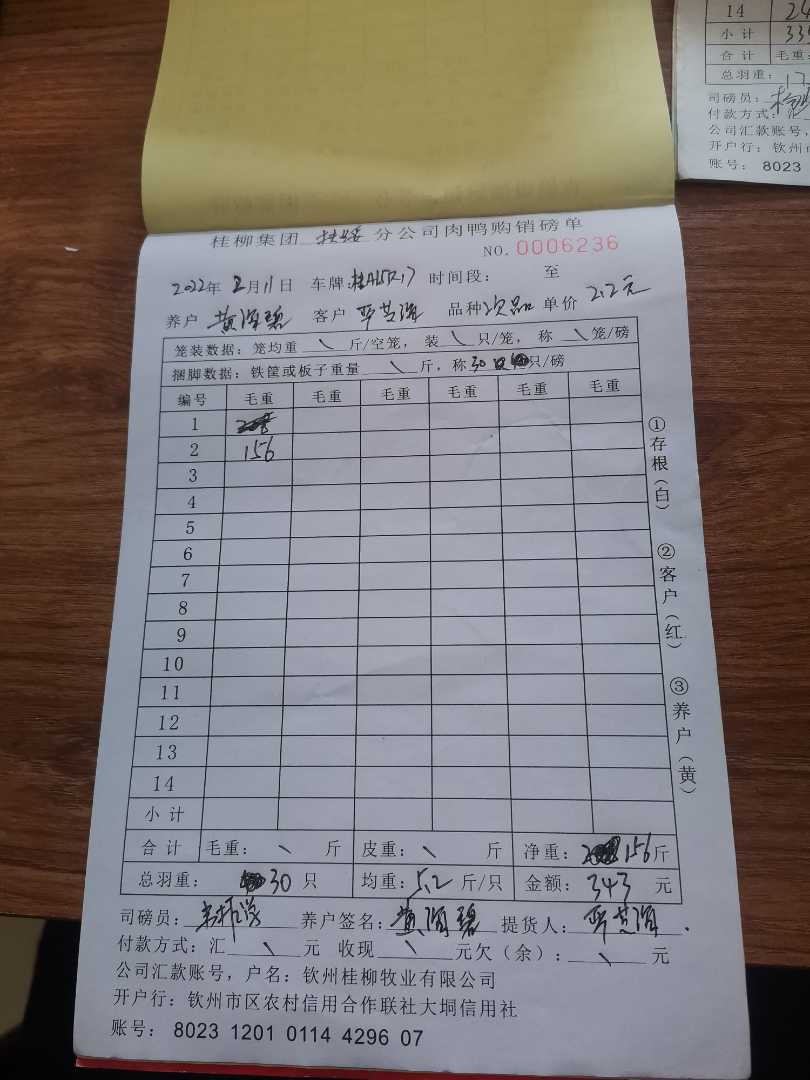 14 24
小计 339
合计 毛重:
总羽重: 12
司磅员:
付款方式: 汇
公司汇款账号,
开户行: 钦州市
账号: 8023
桂柳集团 扶绥 分公司肉鸭购销磅单
NO. 0006236
2022年 2月11日 车牌: 时间段: 至
养户 黄海碧 客户 品种 次品 单价 2.2元
笼装数据: 笼均重 \ 斤/空笼, 装 \ 只/笼, 称 \ 笼/磅
捆脚数据: 铁筐或板子重量 \ 斤, 称30 只/磅
编号 毛重 毛重 毛重 毛重 毛重 毛重
1
2 156
3
4
5
6
7
8
9
10
11
12
13
14
小计
合计 毛重: \ 斤 皮重: \ 斤 净重: 156斤
总羽重: 30 只 均重: 5.2 斤/只 金额: 343 元
司磅员: 养户签名: 黄海碧 提货人:
付款方式: 汇 \ 元 收现 \ 元欠(余): \ 元
公司汇款账号, 户名: 钦州桂柳牧业有限公司
开户行: 钦州市区农村信用合作联社大垌信用社
账号: 8023 1201 0114 4296 07
①存根(白)
②客户(红)
③养户(黄)